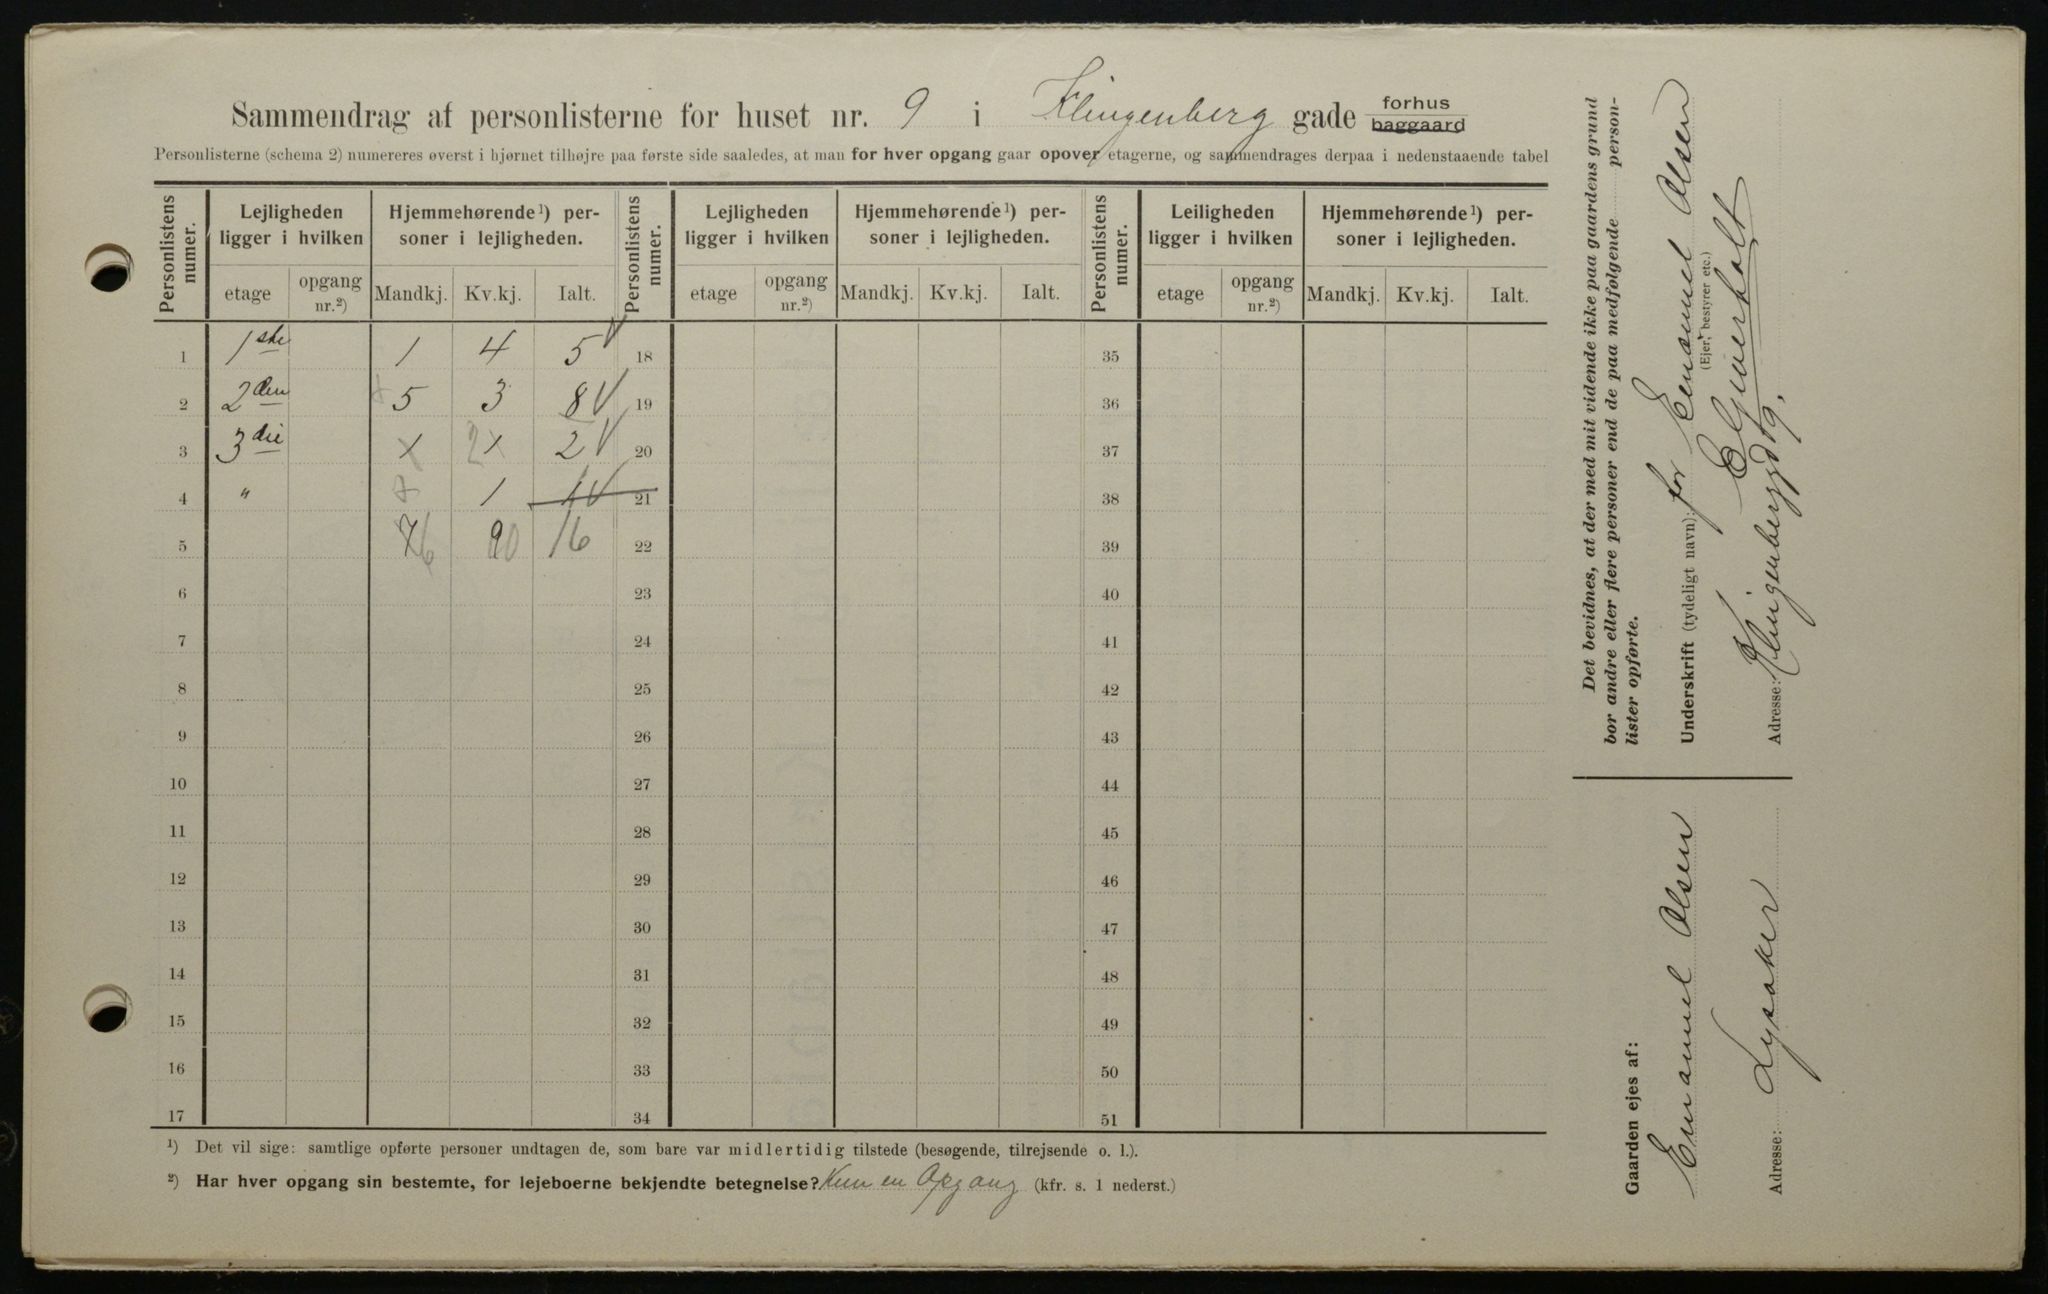 Sammendrag af personlisterne for huset nr. 9 i Klingenberg gade forhus baggaard
Personlisterne (schema 2) numereres øverst i hjørnet tilhøjre paa første side saaledes, at man for hver opgang gaar opover etagerne, og sammendrages derpaa i nedenstaaende tabel
Personlistens numer. Lejligheden ligger i hvilken Hjemmehørende ¹) personer i lejligheden. Personlistens numer. Lejligheden ligger i hvilken Hjemmehørende ¹) personer i lejligheden. Personlistens numer. Leiligheden ligger i hvilken Hjemmehørende ¹) personer i lejligheden.
etage opgang nr.²) Mandkj. Kv.kj. Ialt. etage opgang nr.²) Mandkj. Kv.kj. Ialt. etage opgang nr.²) Mandkj. Kv.kj. Ialt.
1 1ste 1 4 5 18 35
2 2den 5 3 8 19 36
3 3die x 2 x 2 20 37
4 " 1 1 21 38
5 7 6 9 10 16 22 39
6 23 40
7 24 41
8 25 42
9 26 43
10 27 44
11 28 45
12 29 46
13 30 47
14 31 48
15 32 49
16 33 50
17 34 51
¹) Det vil sige: samtlige opførte personer undtagen de, som bare var midlertidig tilstede (besøgende, tilrejsende o. l.).
²) Har hver opgang sin bestemte, for lejeboerne bekjendte betegnelse? Kun en Opgang (kfr. s. 1 nederst.)
Det bevidnes, at der med mit vidende ikke paa gaardens grund
bor andre eller flere personer end de paa medfølgende personlister opførte.
Underskrift (tydeligt navn): for Emanuel Olsen
(Ejer, bestyrer etc.)
Elgjuerholt
Adresse: Klingenberggd 9.
Gaarden ejes af:
Emanuel Olsen
Adresse: Lysaker